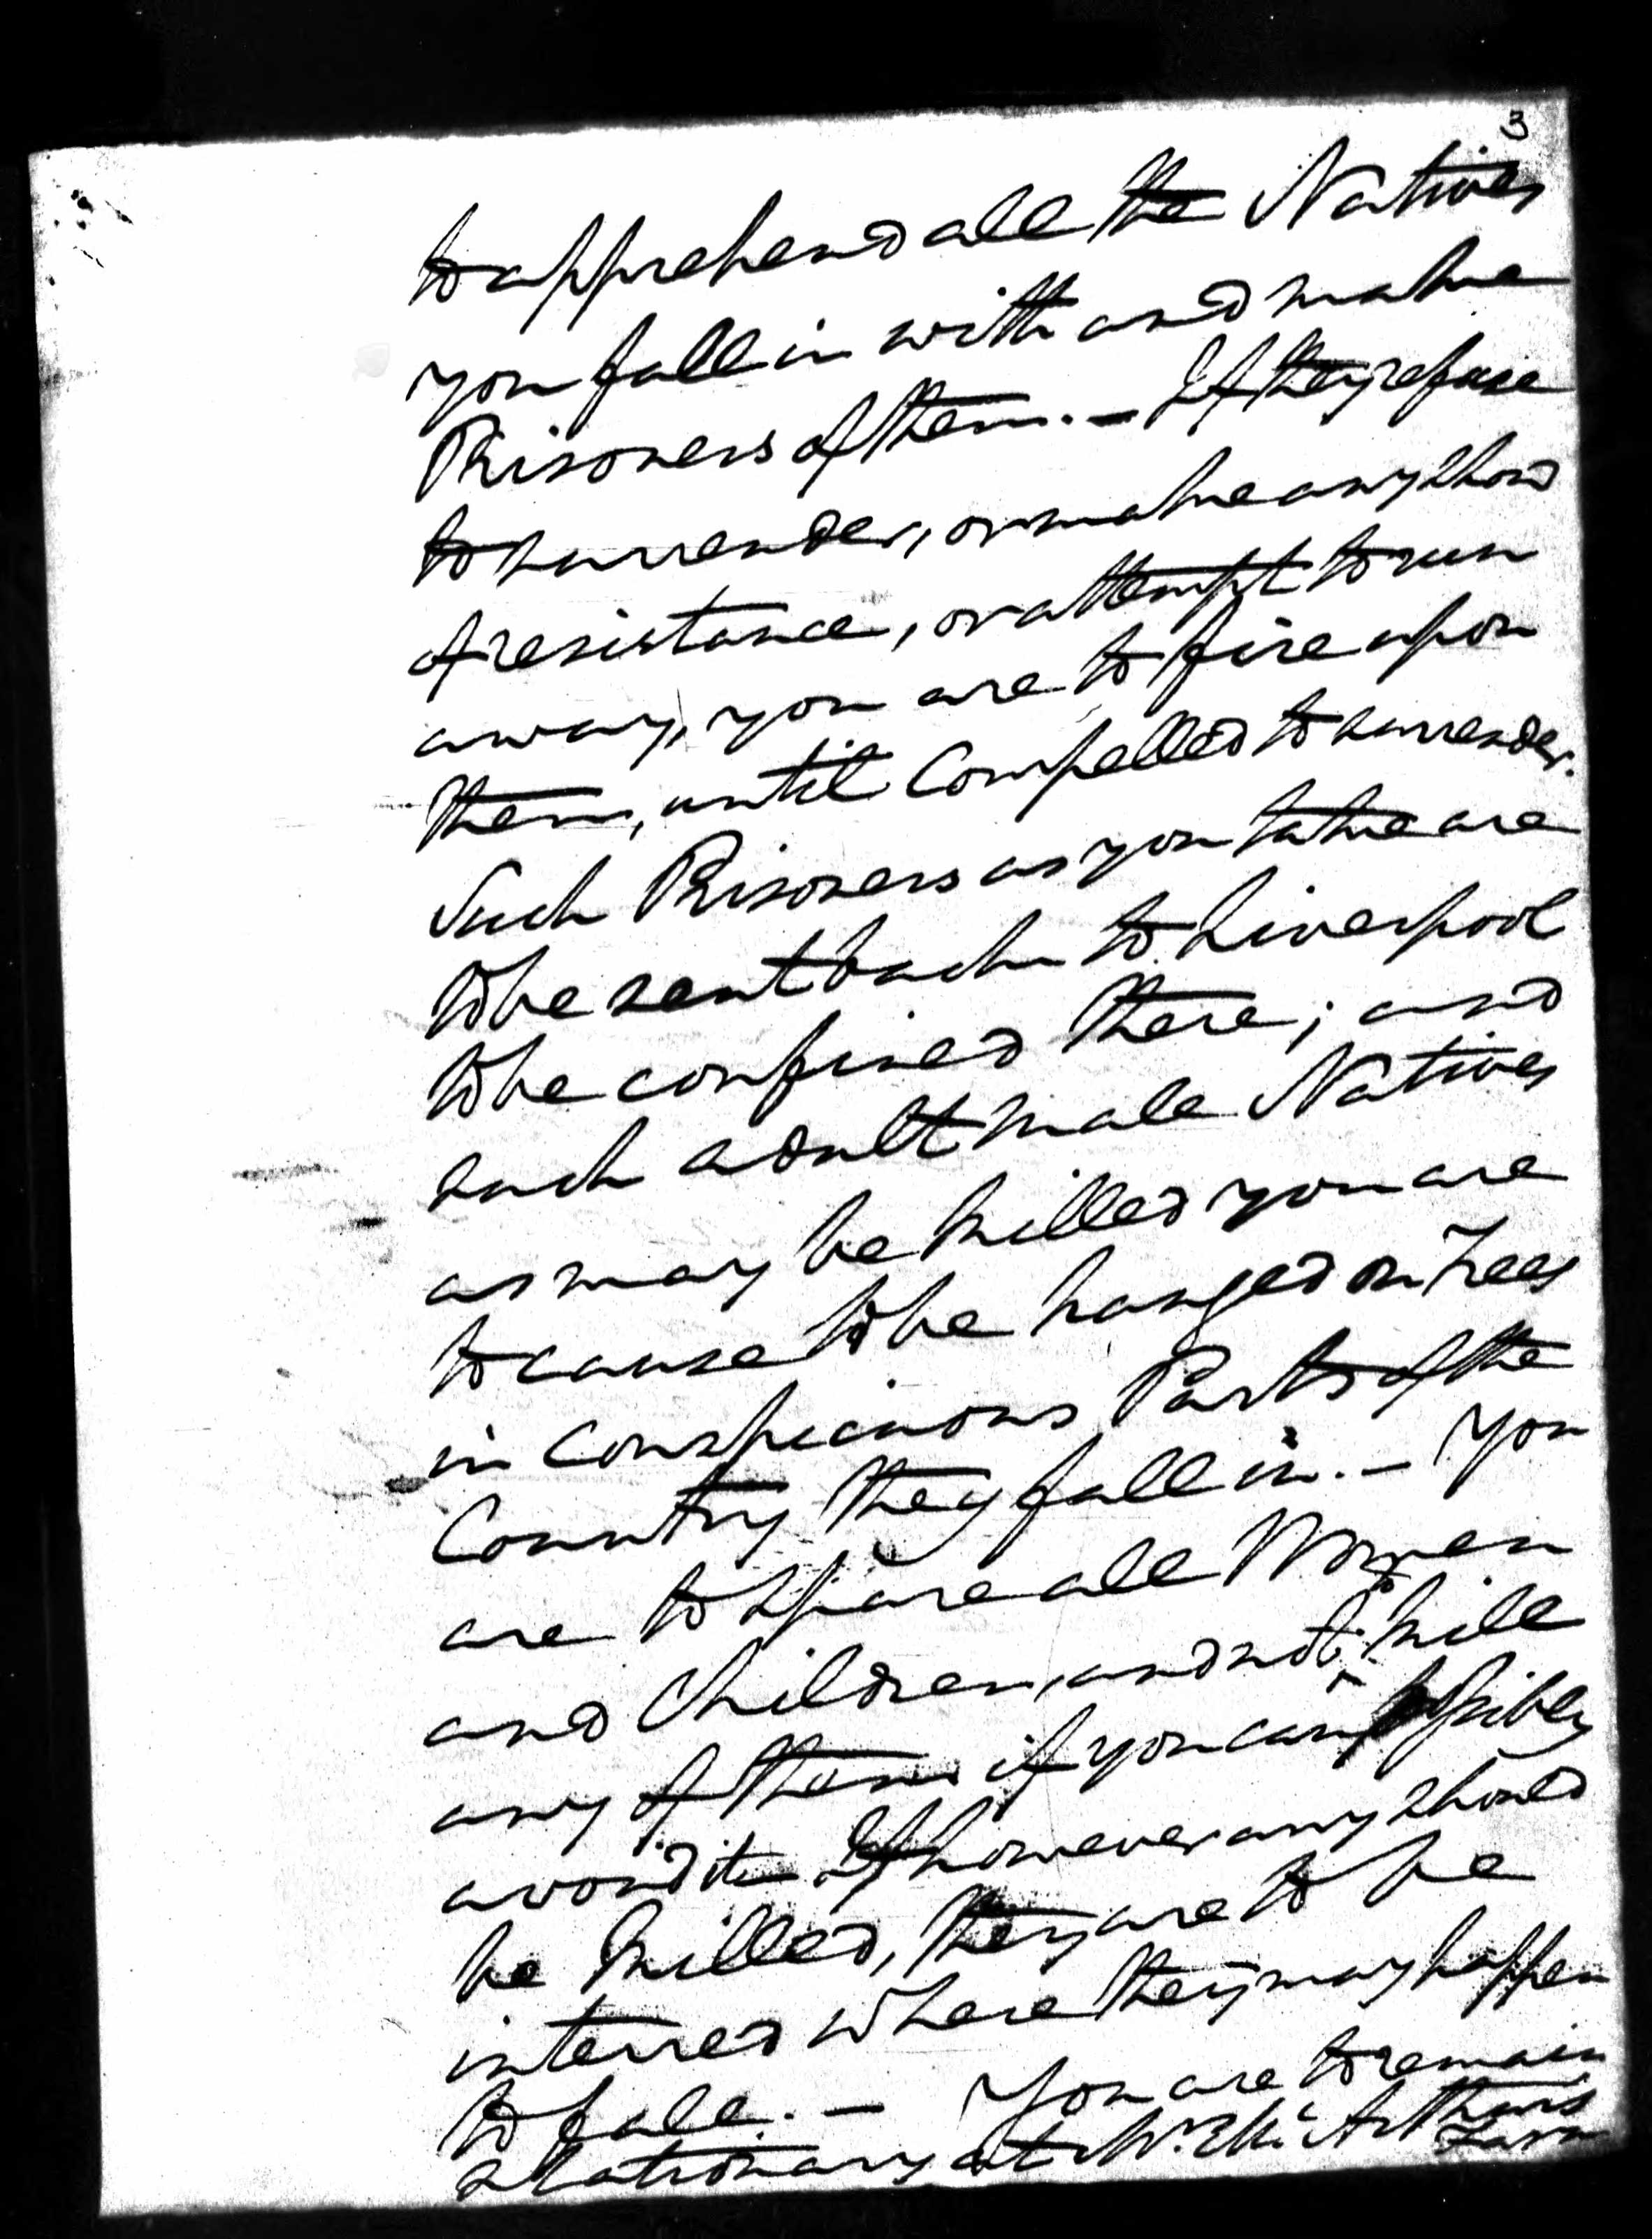 3
to apprehend all the Natives
you fall in with and make
Prisoners of them. — If they refuse
to surrender, or make any show
of resistance, or attempt to run
away, you are to fire upon
them, until Compelled to surrender.
Such Prisoners as you take are
to be sent back to Liverpool
to be confined there; and
such adult male Natives
as may be killed you are
to cause to be hanged on Trees
in Conspicuous Parts of the
Country they fall in. — You
are to spare all Women
and Children, and not kill
any of them if you can possibly
avoid it. If however any should
be killed, they are to be
interred where they may happen
to fall. — You are to remain
stationary at Mr. McArthur's
Farm